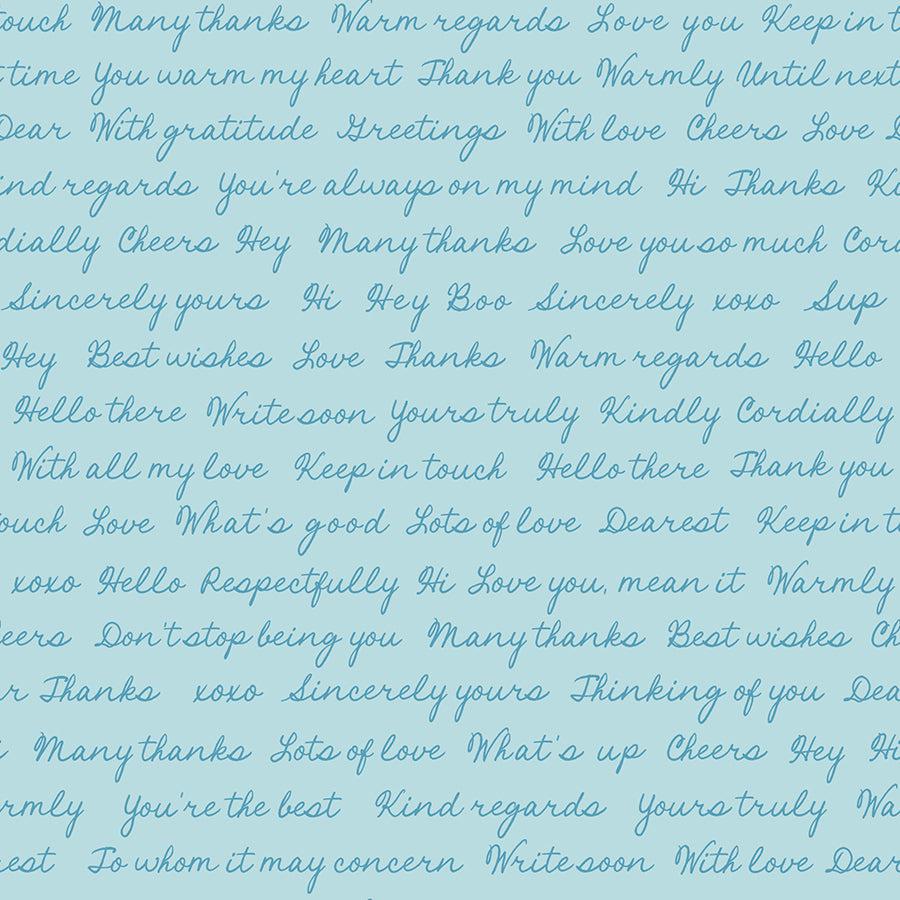 touch Many thanks Warm regards Love you Keep in t
time You warm my heart Thank you Warmly Until next
Dear With gratitude Greetings With love Cheers Love D
ind regards You're always on my mind Hi Thanks Ki
dially Cheers Hey Many thanks Love you so much Cord
Sincerely yours Hi Hey Boo Sincerely xoxo Sup
Hey Best wishes Love Thanks Warm regards Hello
Hello there Write soon Yours truly Kindly Cordially
With all my love Keep in touch Hello there Thank you
ouch Love What's good Lots of love Dearest Keep in t
xoxo Hello Respectfully Hi Love you, mean it Warmly
eers Don't stop being you Many thanks Best wishes Ch
r Thanks xoxo Sincerely yours Thinking of you Dea
i Many thanks Lots of love What's up Cheers Hey Hi
rmly You're the best Kind regards Yours truly Wa
est To whom it may concern Write soon With love Dear